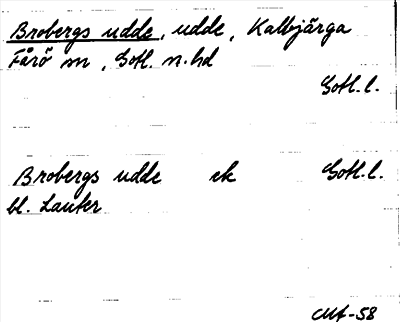 Brobergs udde, udde, Kalbjärga
Fårö sn, Gotl. n. hd
Gotl. l.
Brobergs udde ek Gotl. l.
bl. Lauter
-58